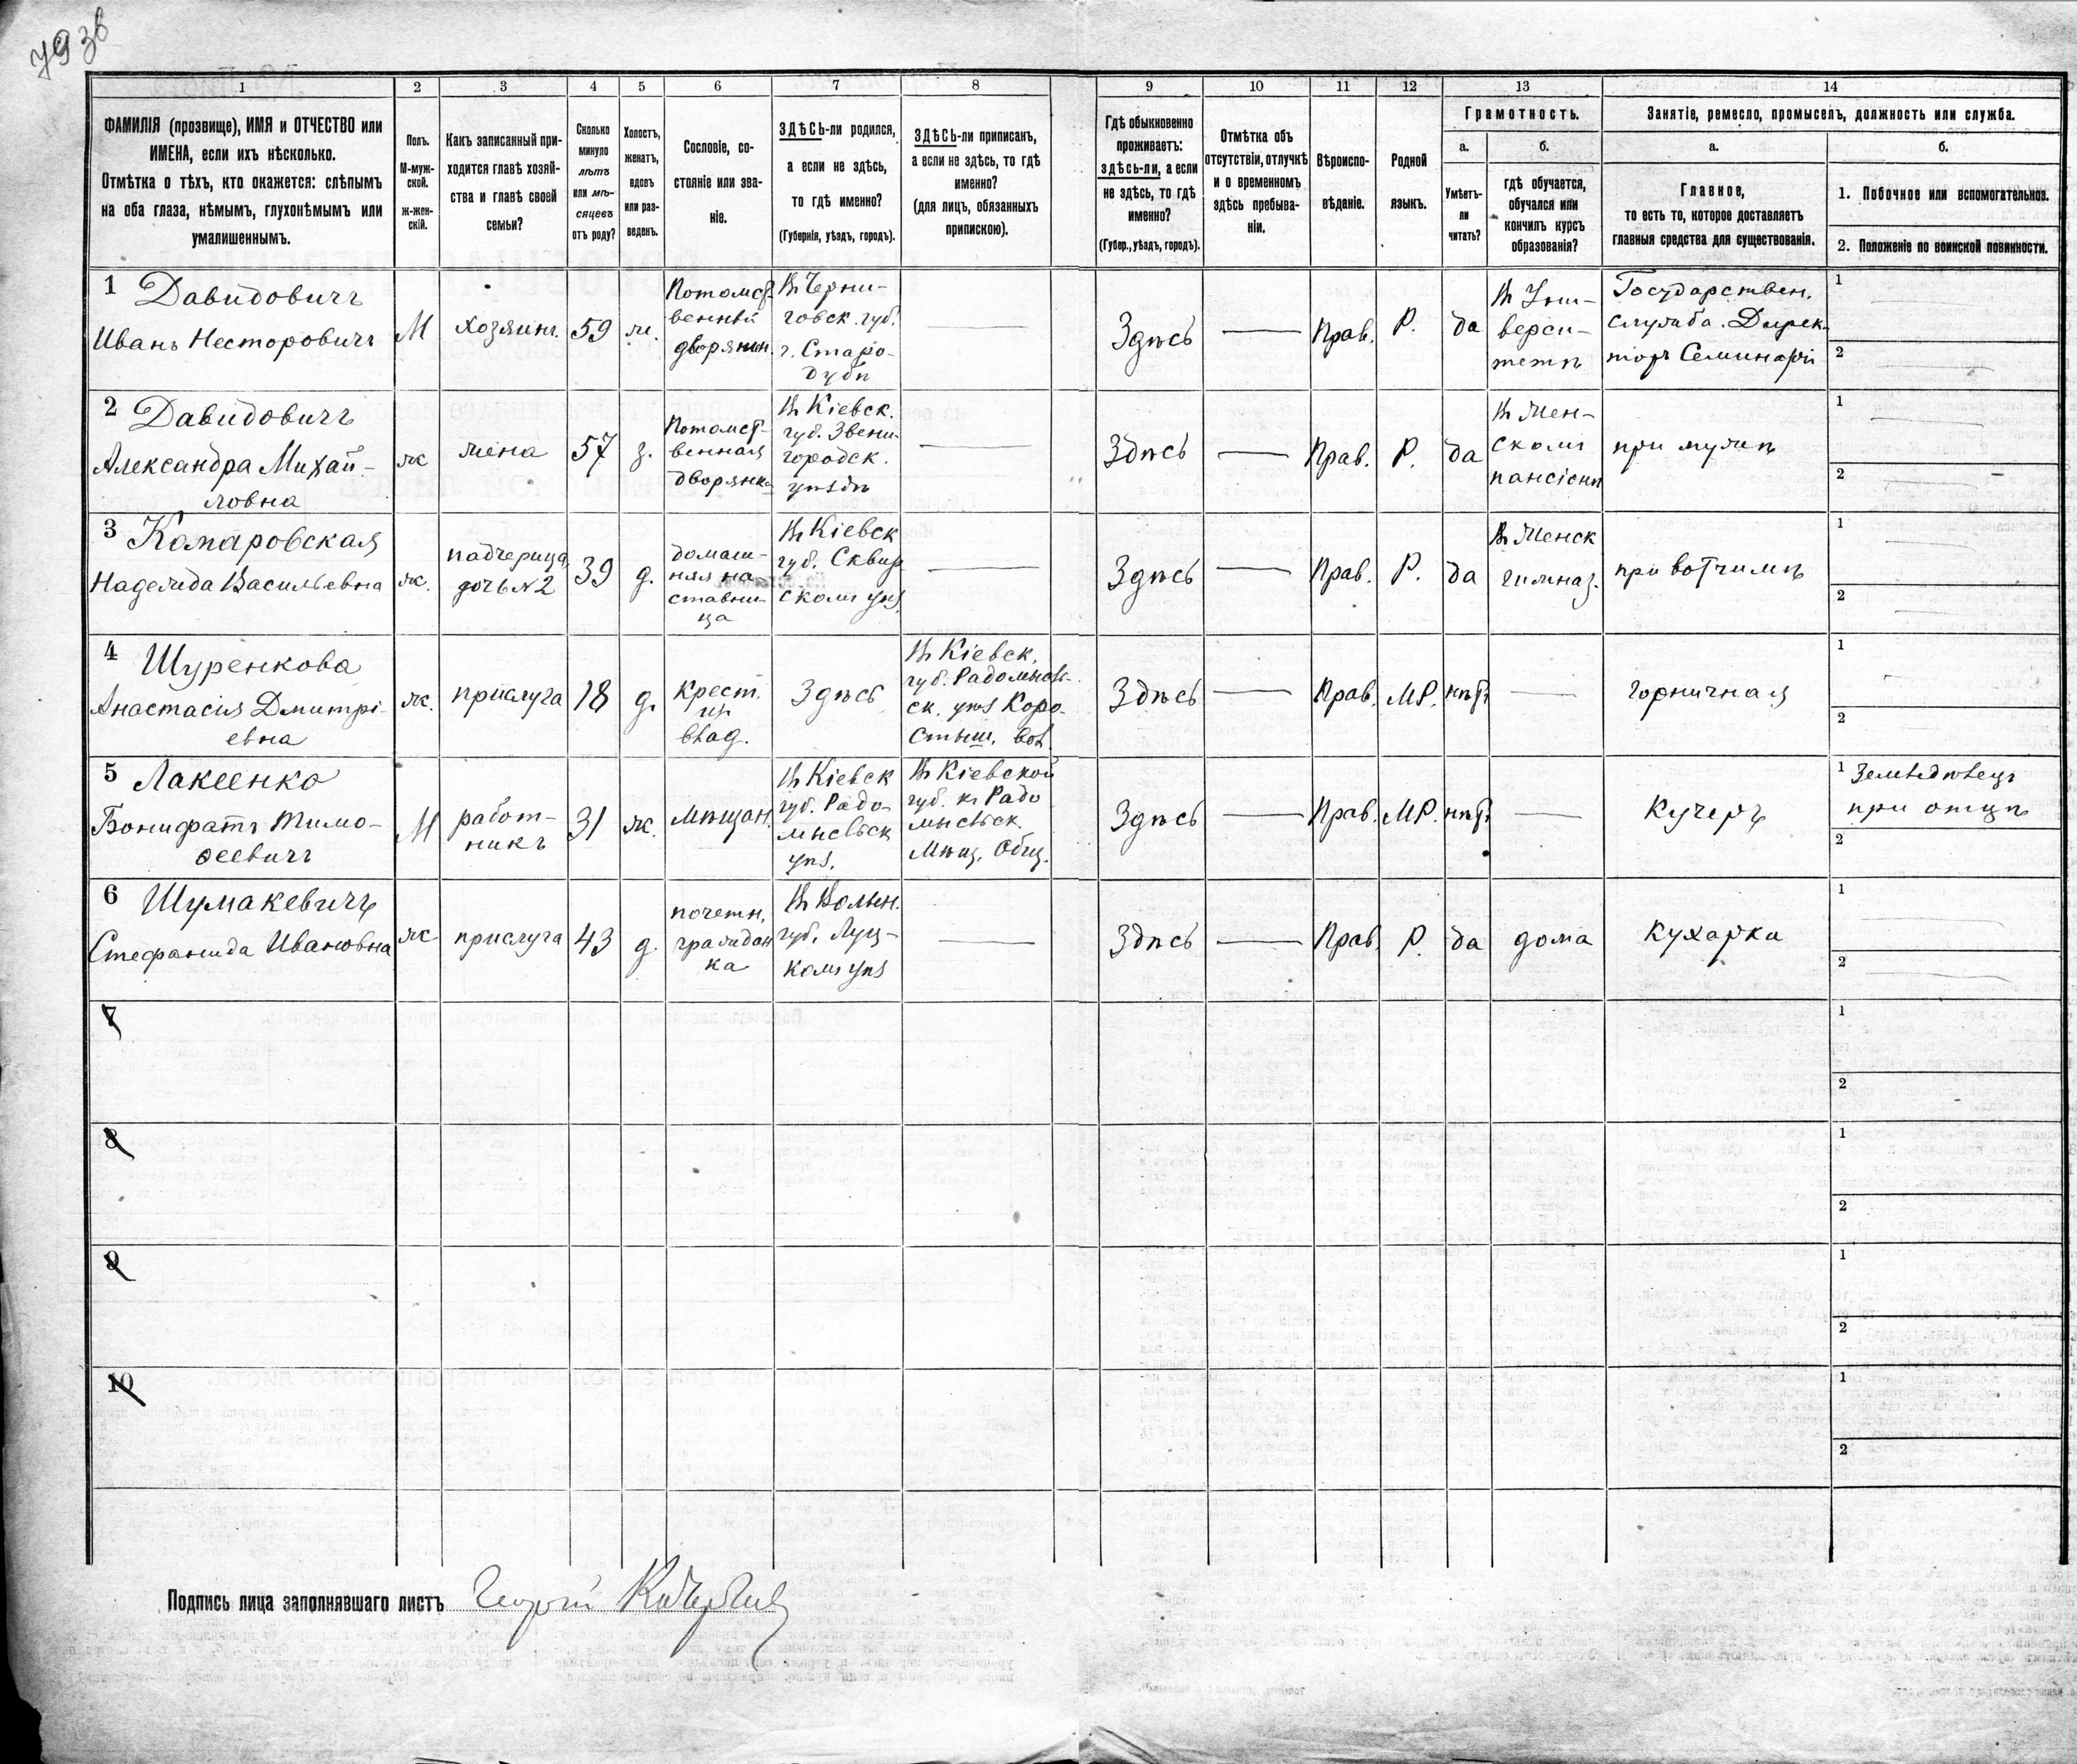 793об
1
2
3
4
5
6
7
8
9
10
11
12
13
14
ФАМИЛІЯ (прозвище), ИМЯ и ОТЧЕСТВО или
ИМЕНА, если ихъ нѣсколько.
Отмѣтка о тѣхъ, кто окажется: слѣпымъ
на оба глаза, нѣмымъ, глухонѣмымъ или
умалишеннымъ.
Полъ.
М-муж-
ской.
ж-жен-
скій.
Какъ записанный при-
ходится главѣ хозяй-
ства и главѣ своей
семьи?
Сколько
минуло
лѣтъ
или мѣ-
сяцевъ
отъ роду?
Холостъ,
женатъ,
вдовъ
или раз-
веденъ.
Сословіе, со-
стояніе или зва-
ніе.
ЗДѢСЬ-ли родился,
а если не здѣсь,
то гдѣ именно?
(Губернія, уѣздъ, городъ).
ЗДѢСЬ-ли приписанъ,
а если не здѣсь, то гдѣ
именно?
(для лицъ, обязанныхъ
припискою).
Гдѣ обыкновенно
проживаетъ:
здѣсь-ли, а если
не здѣсь, то гдѣ
именно?
(Губер., уѣздъ, городъ).
Отмѣтка объ
отсутствіи, отлучкѣ
и о временномъ
здѣсь пребыва-
ніи.
Вѣроиспо-
вѣданіе.
Родной
языкъ.
Грамотность.
а.
Умѣетъ-
ли
читать?
б.
гдѣ обучается,
обучался или
кончилъ курсъ
образованія?
Занятіе, ремесло, промыселъ, должность или служба.
а.
Главное,
то есть то, которое доставляетъ
главныя средства для существованія.
б.
1. Побочное или вспомогательное.
2. Положеніе по воинской повинности.
1 Давидовичъ
Иванъ Несторовичъ
М
хозяинъ.
59
ж.
Потомст-
венный
дворянин.
Въ Черни-
говск. губ.
г. Старо-
дубѣ
Здѣсь
Прав.
Р.
да
Въ Уни-
верси-
тетѣ
Государствен.
служба. Дирек-
торъ Семинаріи
1
2
2 Давидовичъ
Александра Михай-
ловна
ж
жена
57
з.
Потомст-
венная
дворянка
Въ Кіевск.
губ. Звени-
городск.
уѣздѣ
Здѣсь
Прав.
Р.
да
Въ Жен-
скомъ
пансіонѣ
при мужѣ
1
2
3 Комаровская
Надежда Васильевна
ж.
падчерица,
дочь №2
39
д.
домаш-
няя на-
ставни-
ца
Въ Кіевск
губ. Сквир
скомъ уѣз.
Здѣсь
Прав.
Р.
да
Въ Женск
гимназ.
при вотчимѣ
1
2
4 Шуренкова
Анастасія Дмитрі-
евна
ж.
прислуга
18
д.
крест.
изъ
влад.
Здѣсь
Въ Кіевск.
губ. Радомысль-
ск. уѣз Коро-
стыш. вол.
Здѣсь
Прав.
МР.
нѣтъ
горничная
1
2
5 Лакеенко
Бонифатъ Тимо-
ѳеевичъ
М
работ-
никъ
31
ж.
Мѣщан.
Въ Кіевск
губ. Радо-
мысльск
уѣз.
Въ Кіевской
губ. къ Радо
мысльск.
Мѣщ. Общ.
Здѣсь
Прав.
МР.
нѣтъ
Кучеръ
1 Земледѣлецъ
при отцѣ
2
6 Шумакевичъ
Стефанида Ивановна
ж
прислуга
43
д.
почетн.
граждан
ка
Въ Волын.
губ. Луц-
комъ уѣз
Здѣсь
Прав.
Р.
да
дома
Кухарка
1
2
7
1
2
8
1
2
9
1
2
10
1
2
Подпись лица заполнявшаго листъ Георгій